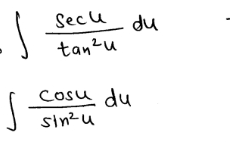 ∫ sec u / tan²u du
∫ cos u / sin²u du